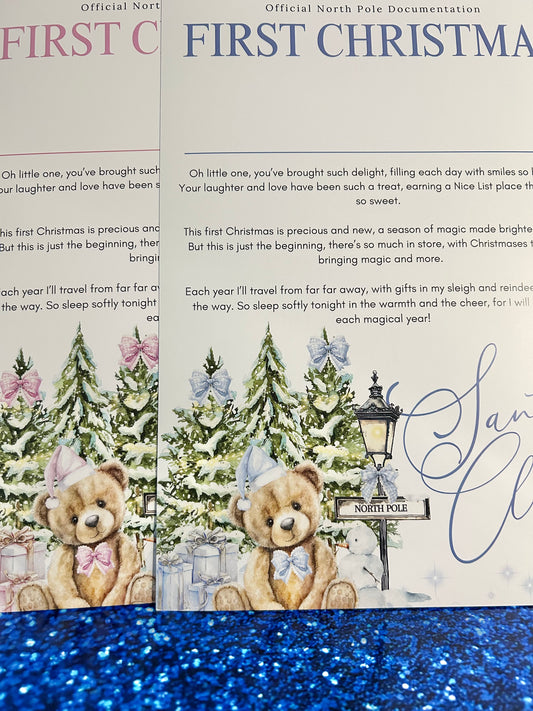 Official Nor
FIRST C
Oh little one, you've brought such
our laughter and love have been s
his first Christmas is precious and
But this is just the beginning, ther
bringin
ach year I'll travel from far far aw
the way. So sleep softly tonight
ea
Official North Pole Documentation
FIRST CHRISTMA
Oh little one, you've brought such delight, filling each day with smiles so
Your laughter and love have been such a treat, earning a Nice List place th
so sweet.
This first Christmas is precious and new, a season of magic made brighte
But this is just the beginning, there's so much in store, with Christmases t
bringing magic and more.
Each year I'll travel from far far away, with gifts in my sleigh and reindee
the way. So sleep softly tonight in the warmth and the cheer, for I will
each magical year!
NORTH POLE
San
Cl